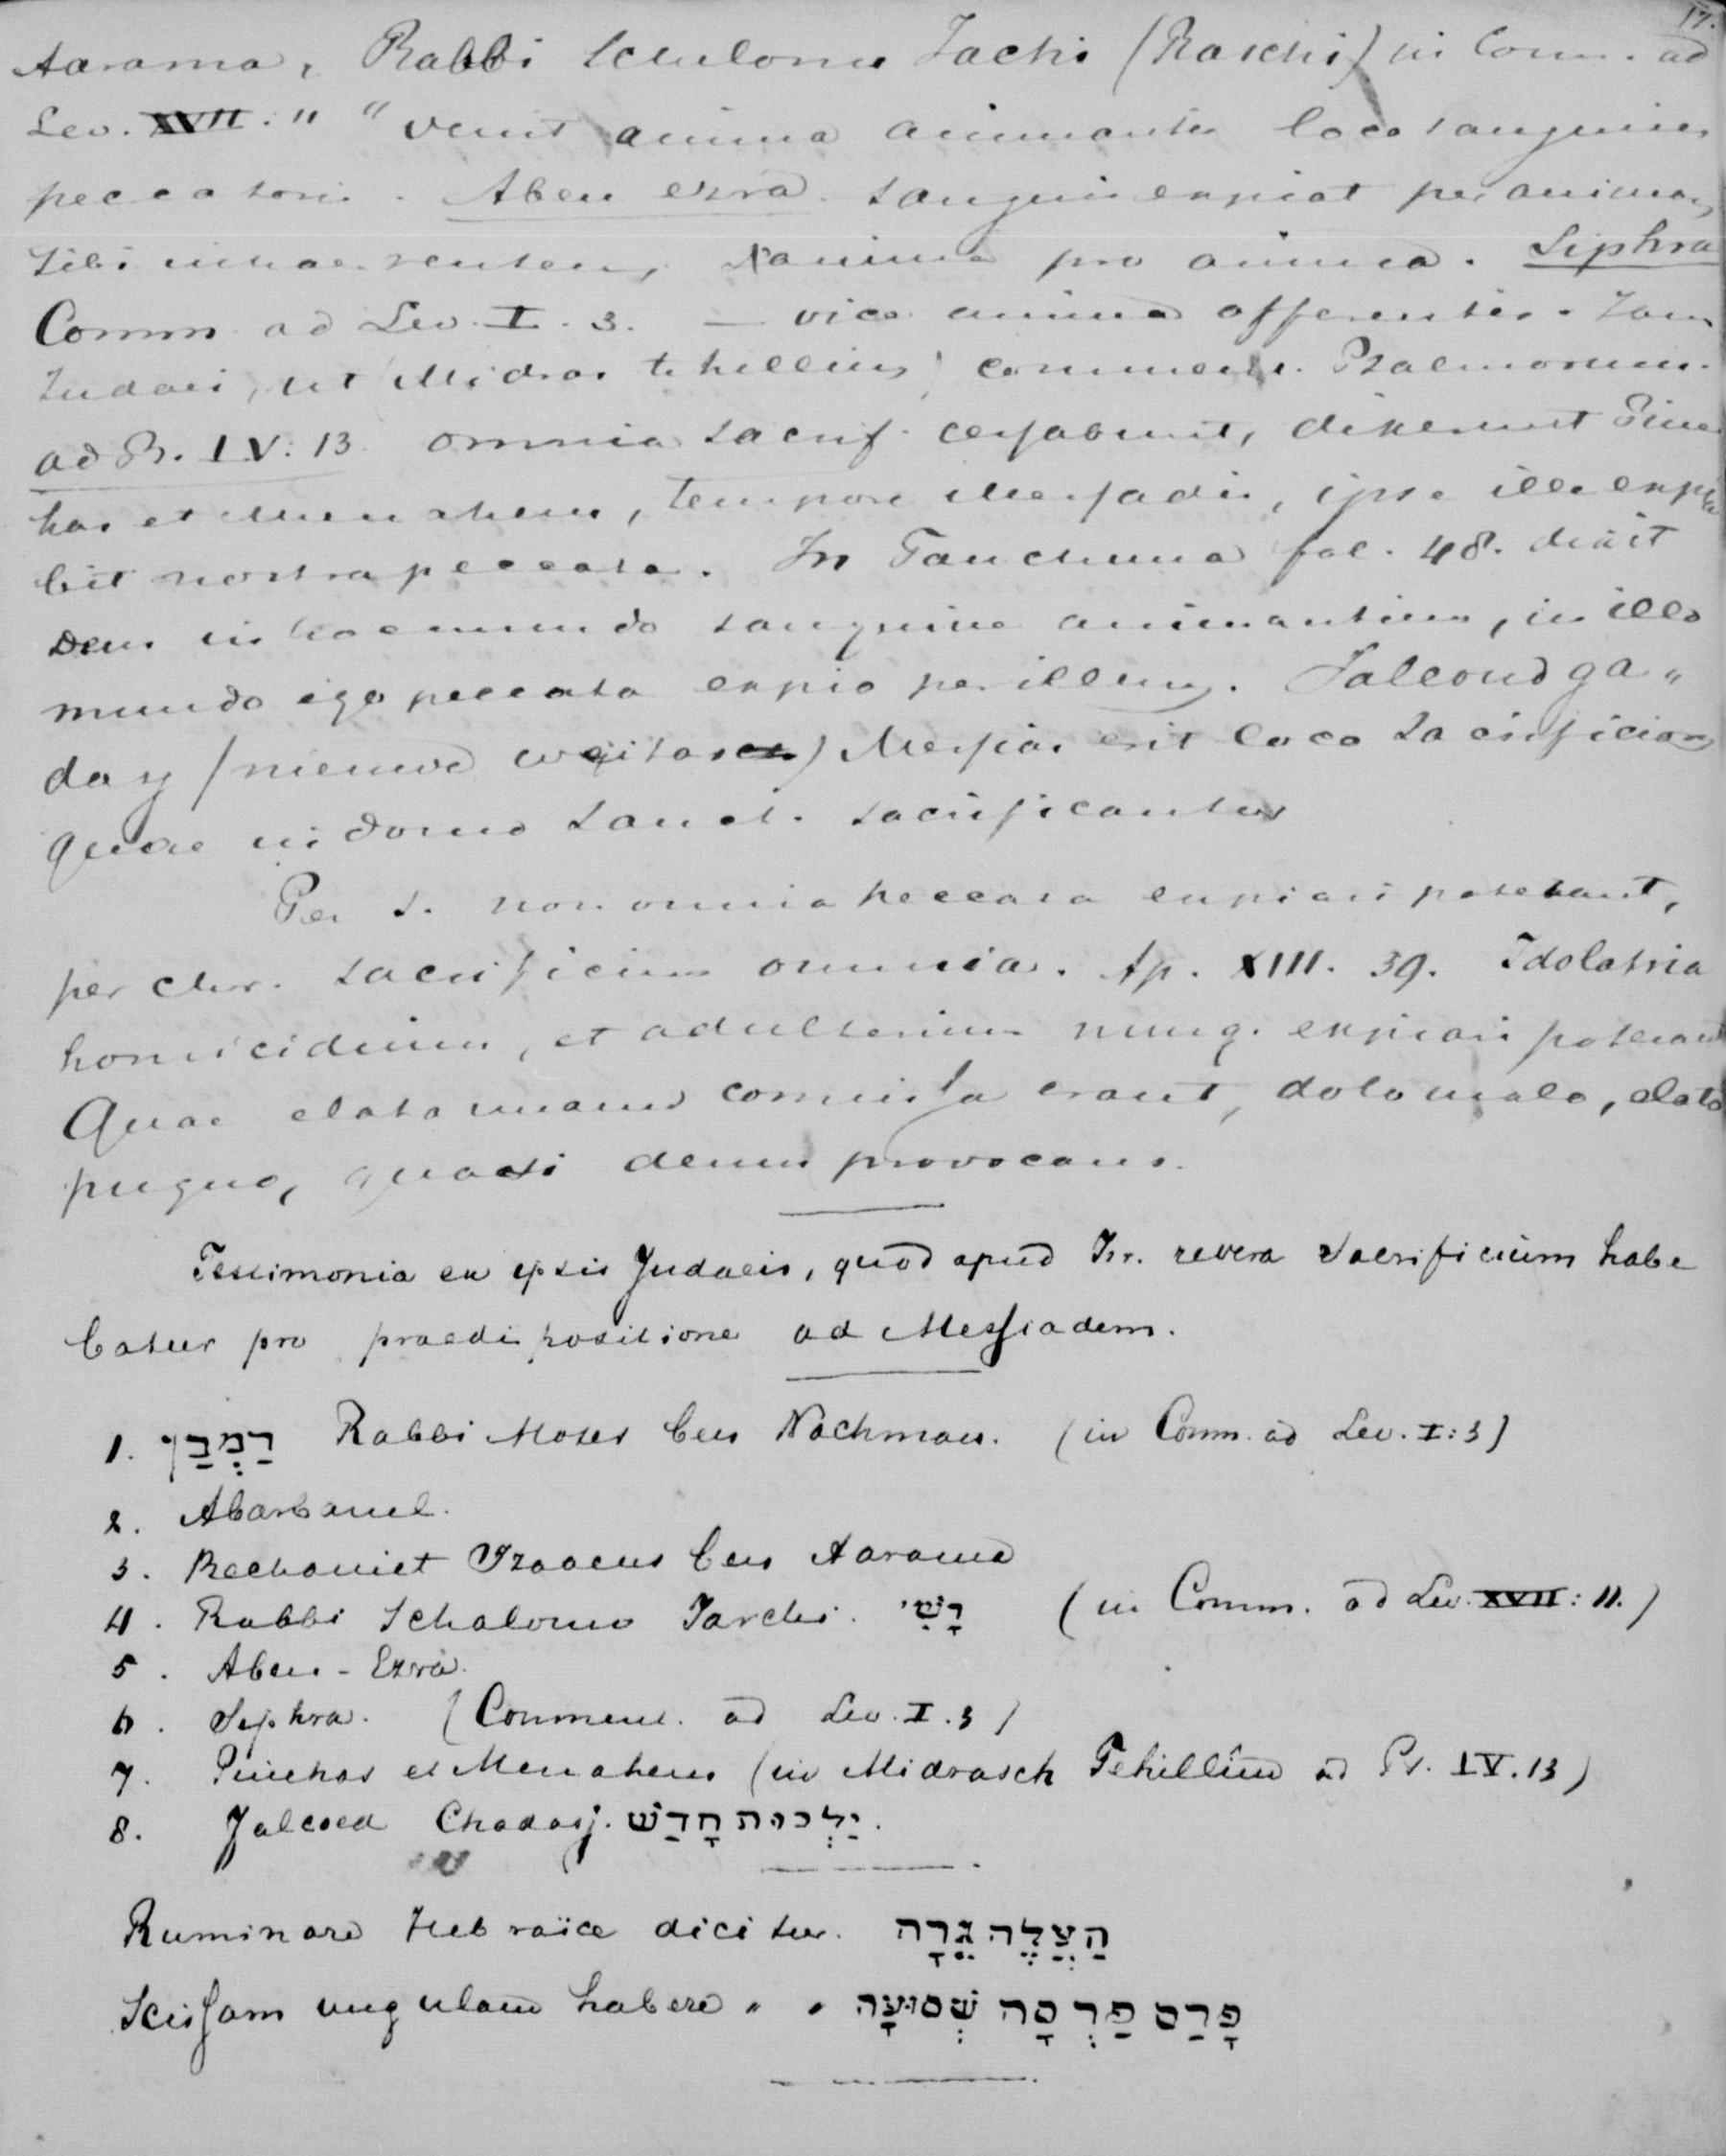 17.
Aarama, Rabbi Schulomo Jachi (Raschi) in Comm. ad
Lev. XVII: 11 "venit anima animantis loco sanguinis
peccatoris. Aben ezra. sanguis expiat per animam
sibi inhaerentem, anima pro anima. Siphra
Comm. ad Lev. I. 3. — vice anima offerentis. Jam
Judaei, ut Midras tehillim, comment. Psalmorum.
ad Ps. IV: 13. omnia sacrif. cessabunt, dixerunt Pine
has et Menahem, tempore Messadis, ipse ille expia
bit nostra peccata. In Tanchuma fol. 48. dixit
Deus in hoc mundo sanguine animantium, in illo
mundo ego peccata expio per illum. Jalcoud ga"
dasj (nieuwe Messias erit loco sacrificiorum
quae in domo sanct. sacrificantur
Per s. non omnia peccata expiari poterant,
per Chr. sacrificium omnia. Ap. XIII. 39. Idolatria
homicidium, et adulterium nunq. expiari poterant
Quae elata manu commissa erant, dolo malo, elato
pugno, quasi deum provocans.
Testimonia ex ipsis Judaeis, quod apud Isr. revera Sacrificium habe
batur pro praedispositione ad Messiadem.
1. רַמְבַּן Rabbi Moses ben Nachman. (in Comm. ad Lev. I: 3)
2. Abarbanel.
3. Isaacus ben Aarama
4. Rabbi Schalomo Jarchi. רָשִׁי (in Comm. ad Lev. XVII: 11.)
5. Aben-Ezra.
6. Siphra. (Comment. ad Lev. I. 3)
7. Pinehas et Menahem (in Midrasch Tehillim ad Ps. IV. 13)
8. Jalcoed Chadasj. יַלְכּוּת חָדַשׁ.
Ruminare Hebraïce dicitur. הַעֲלֶה גֵּרָה
Scissam ungulam habere " " פָּרַס פַּרְסָה שְׁסוּעָה